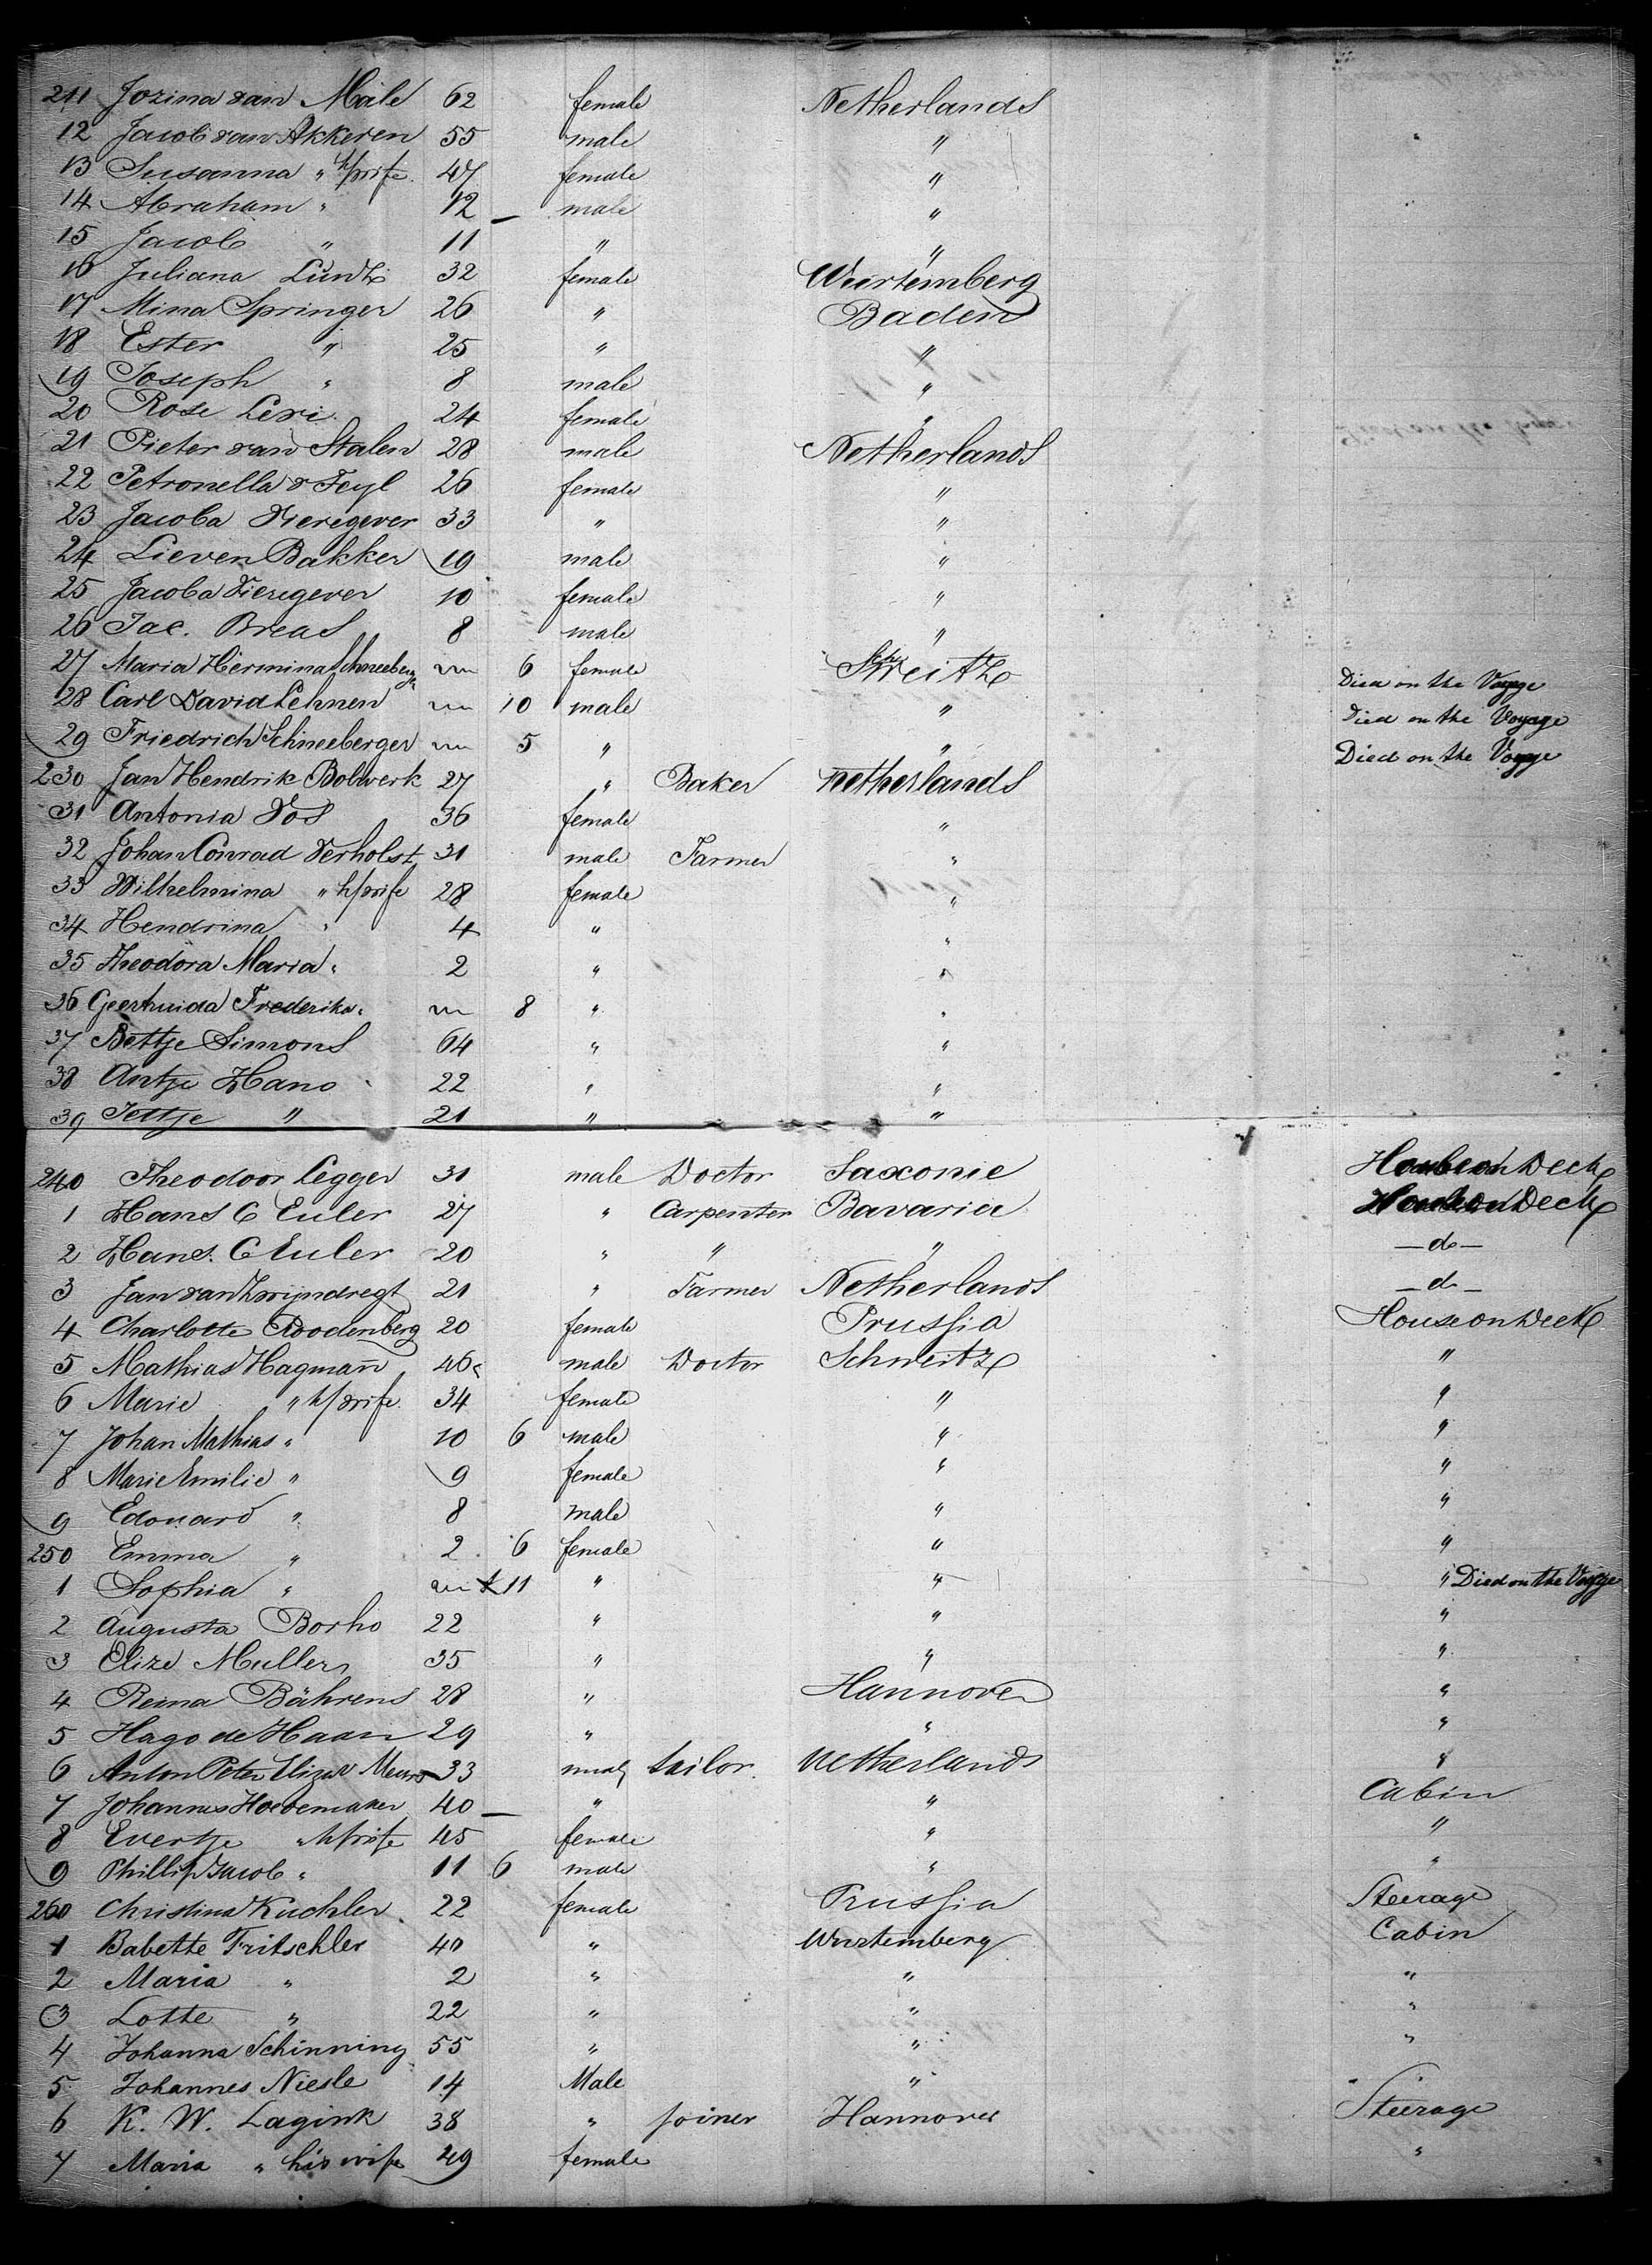 211 Jozina van Male 62 female Netherlands
12 Jacob van Akkeren 55 male "
13 Susanna " h/wife 47 female "
14 Abraham " 12 – male "
15 Jacob " 11 " "
16 Juliana 32 female Wurtemberg
17 Mina Springer 26 " Baden
18 Ester " 25 " "
19 Joseph " 8 male "
20 Rose Levi 24 female "
21 Pieter van Stalen 28 male Netherlands
22 Petronella v Feyl 26 female "
23 Jacoba Vieregever 33 " "
24 Lieven Bakker 19 male "
25 Jacoba Vieregever 10 female "
26 Jac. Breas 8 male "
27 Maria Hermina Schneeberger 6 female Died on the Voyage
28 Carl David Lehnen 10 male " Died on the Voyage
29 Friedrich Schneeberger 5 " " Died on the Voyage
230 Jan Hendrik Bolwerk 27 " Baker Netherlands
31 Antonia Vos 36 female "
32 Johan Conrad Verholst 31 male Farmer "
33 Wilhelmina " h/wife 28 female "
34 Hendrina " 4 " "
35 Theodora Maria " 2 " "
36 Geertruida Frederika " 8 " "
37 Bettje Simons 64 " "
38 Antje Hano 22 " "
39 Jettje " 21 " "
240 Theodoor Legger 31 male Doctor Saxonie House on Deck
1 Hans C Euler 27 " Carpenter Bavaria House on Deck
2 Hans. C Euler 20 " " " – do –
3 Jan van Zwijndregt 21 " Farmer Netherlands – do –
4 Charlotte Roodenberg 20 female Prussia House on Deck
5 Mathias Hagmann 46 male Doctor Schweitz "
6 Marie " h/wife 34 female " "
7 Johan Mathias " 10 6 male " "
8 Marie Emilie " 9 female " "
9 Edouard " 8 male " "
250 Emma " 2 6 female " "
1 Sophia " 11 " " " Died on the Voyage
2 Augusta Borho 22 " " "
3 Elize Muller 35 " " "
4 Reina Bährens 28 " Hannover "
5 Hago de Haan 29 " " "
6 Anton Peter Elizar Meurs 33 male tailor Netherlands "
7 Johannes Hoedemaker 40 – " " Cabin
8 Evertje " h/wife 45 female " "
9 Phillip Jacob " 11 6 male " "
260 Christina Kuchler 22 female Prussia Steerage
1 Babette Fritschler 40 " Wurtemberg Cabin
2 Maria " 2 " " "
3 Lotte " 22 " " "
4 Johanna Schinning 55 " " "
5 Johannes Niesle 14 Male " "
6 K. W. Lagink 38 " Joiner Hannover Steerage
7 Maria " his wife 49 female "